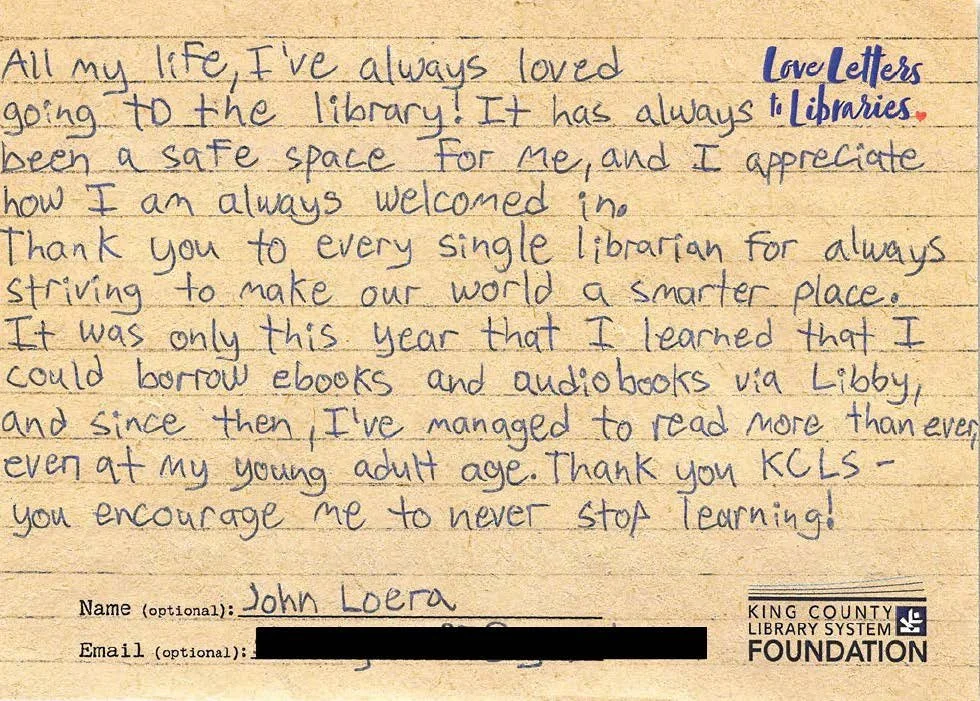 All my life, I've always loved
Love Letters
going to the library! It has always
to Libraries
been a safe space for me, and I appreciate
how I am always welcomed in.
Thank you to every single librarian for always
striving to make our world a smarter place.
It was only this year that I learned that I
could borrow ebooks and audiobooks via Libby,
and since then, I've managed to read more than ever,
even at my young adult age. Thank you KCLS -
you encourage me to never stop learning!
Name (optional): John Loera
Email (optional):
KING COUNTY
LIBRARY SYSTEM
FOUNDATION